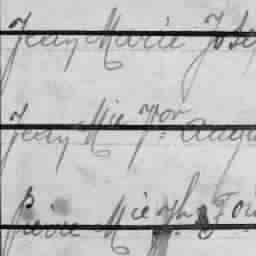 Jean Marie Jose
Jean Mie Jor Augu
Pierre Mie Jh Fois